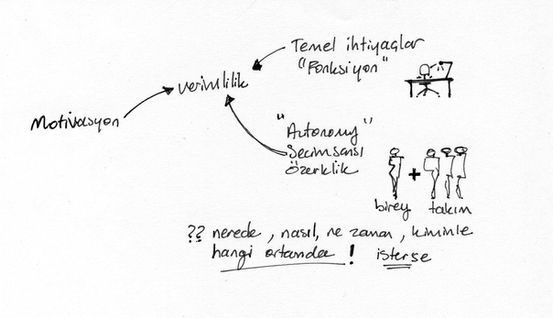 Temel ihtiyaçlar
"Fonksiyon"
verimlilik
Motivasyon
"Autonomy"
Seçim şansı
Özerklik
+
birey takım
?? nerede, nasıl, ne zaman, kiminle
hangi ortamda! isterse